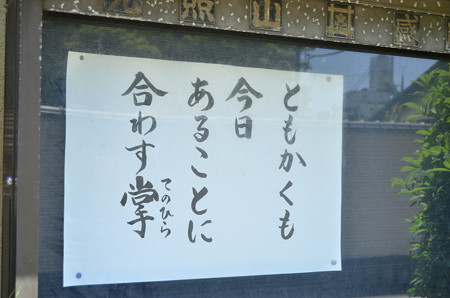 ともかくも
今日
あることに
合わす掌
てのひら